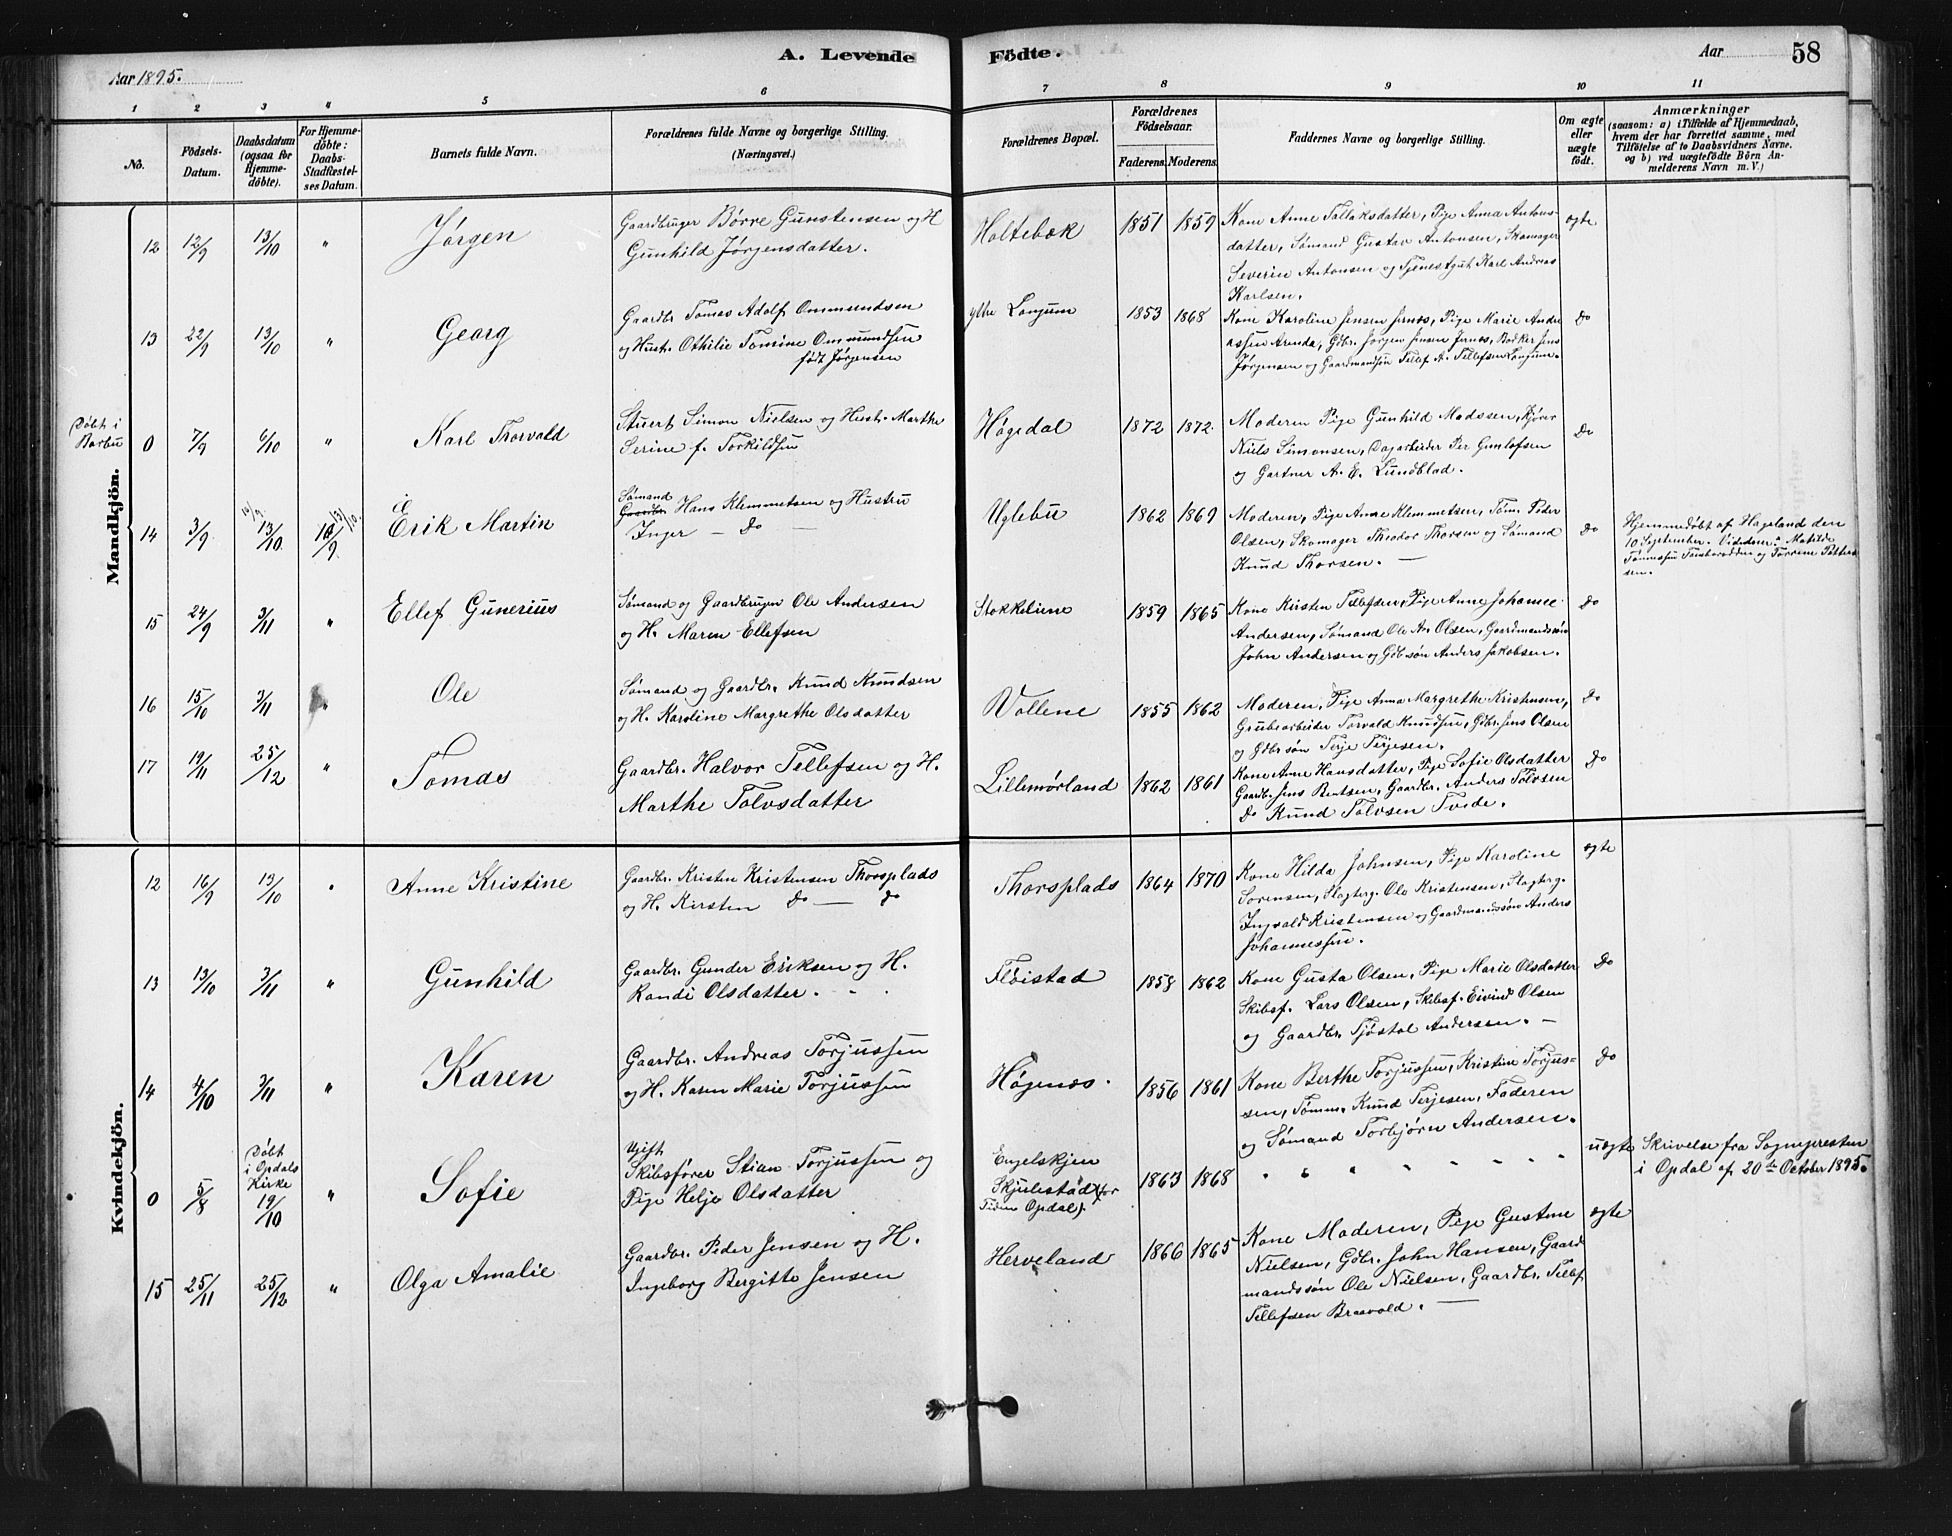 Aar 1895.
A. Levende Födte.
Aar 58
1 2 3 " 5 6 7 8 9 10 11
No.
Födsels-Datum.
Daabsdatum (ogsaa for Hjemme-döbte).
For Hjemme-döbte: Daabs-Stadfæstel-ses Datum.
Barnets fulde Navn.
Forældrenes fulde Navne og borgerlige Stilling. (Næringsvei.)
Forældrenes Bopæl.
Forældrenes Födselsaar.
Faderens. Moderens.
Faddernes Navne og borgerlige Stilling.
Om ægte eller uægte födt.
Anmærkninger
(saasom: a) i Tilfælde af Hjemmedaab, hvem der har forrettet samme, med Tilföielse af to Daabsvidners Navne, og b) ved uægtefödte Börn An-melderens Navn m. V.)
Mandkjön.
12 12/9 13/10 " Jørgen
Gaardbruger Børre Gunstensen og H.
Gunhild Jørgensdatter.
Holtebæk 1851 1859
Kone Anne Tallaksdatter, Pige Anna Antons-
datter, Sømand Gustav Antonsen, Skomager
Severin Antonsen og Tjenestgut Karl Andreas
Karlsen.
ægte
13 22/9 13/10 " Georg
Gaardbr. Tomas Adolf Ommundsen
og Hust. Othilie Tomine Ommundsen
født Jørgensen
ytre Longum 1853 1868
Kone Karoline Jensen Jernæs, Pige Marie Andre
assen Arendal, Gbr. Jørgen Jensen Jernæs, Bødker Jens
Jørgensen og Gaardmandssøn Tellef A. Tellefsen Longum.
Do
Døbt i Barbu
0 7/9 6/10 " Karl Thorvald
Stuert Simon Nielsen og Hust. Marthe
Serine f. Torkildsen
Høgedal 1872 1872.
Moderen Pige Gunhild Madssen, Kjører
Niels Simonsen, Dagarbeider Per Gunlofsen
og Gartner A. E. Lundblad.
Do
14 3/9 13/10 13/10. Erik Martin
Sømand
Gaardbr. Hans Klemmetsen og Hustru
Inger — Do —
Uglebu 1862 1869
Moderen, Pige Anne Klemmetsen, Tøm. Peder
Olsen, Skomager Theodor Thorsen og Sømand
Knud Thorsen. —
Do
Hjemmedøbt af Hageland den
10 September. Vidner: Matilde
15 24/9 3/11 " Ellef Gunerius
Sømand og Gaardbruger Ole Andersen
og H. Maren Ellefsen
Stokkeliene 1859 1865
Kone Kirsten Tellefsen, Pige Anne Johanne
Andersen, Sømand Ole An. Olsen, Gaardmandssøn
John Andersen og Gbl søn Anders Jakobsen.
Do
16 15/10 3/11 " Ole
Sømand og Gaardbr. Knud Knudsen
og H. Karoline Margrethe Olsdatter
Vollene 1855 1862
Moderen, Pige Anna Margrethe Kristensen,
Grubearbeider Torvald Knudsen, Gdbr. Jens Olsen
og Gdbr søn Terje Terjesen.
Do
17 19/11 25/12 " Tomas
Gaardbr. Halvor Tellefsen og H.
Marthe Tolvsdatter
Lillemørland 1862 1861
Kone Anne Hansdatter, Pige Sofie Olsdatter
Gaardbr. Jens Bentsen, Gaardbr. Anders Tolvsen
Do Knud Tolvsen Tvide.
Do
Kvindekjön.
12 16/9 13/10 " Anne Kristine
Gaardbr. Kristen Kristensen Thorsplads
og H. Kirsten Do — Do
Thorsplads 1864 1870
Kone Hilda Johnsen, Pige Karoline
Sørensen, Slagterg. Ole Kristensen, Slagterg.
Ingvald Kristensen og Gaardmandssøn Anders
Johannessen.
ægte
13 13/10 3/11 " Gunhild
Gaardbr. Gunder Eriksen og H.
Randi Olsdatter.
Fløistad 1858 1862
Kone Gusta Olsen, Pige Marie Olsdatter
Skibsf. Lars Olsen, Skibsf. Eivind Olsen
og Gaardbr. Tjøstol Andersen. —
Do
14 4/10 3/11 " Karen
Gaardbr. Andreas Torjussen
og H. Karen Marie Torjussen
Høgenæs. 1856 1861
Kone Berthe Torjussen, Kristine Torjus-
sen, Tømm. Knud Terjesen, Faderen
og Sømand Torbjørn Andersen.
Do
0 5/8 Døbt i Opdals Kirke 19/10 " Sofie
Ugift
Skibsfører Stian Torjussen og
Pige Helje Olsdatter
Engelskjen
Skjulestad (for
Tiden Opdal).
1863 1868
" " " " " " "
uægte
Skrivelse fra Sognepresten
i Opdal af 20de October 1895.
15 25/11 25/12 " Olga Amalie
Gaardbr. Peder Jensen og H.
Ingeborg Bergitte Jensen
Herveland 1866 1865
Kone Moderen, Pige Gustine
Nielsen, Gdbr. John Hansen, Gaard
mandssøn Ole Nielsen, Gaardbr. Tellef
Tellefsen Braavold. —
ægte